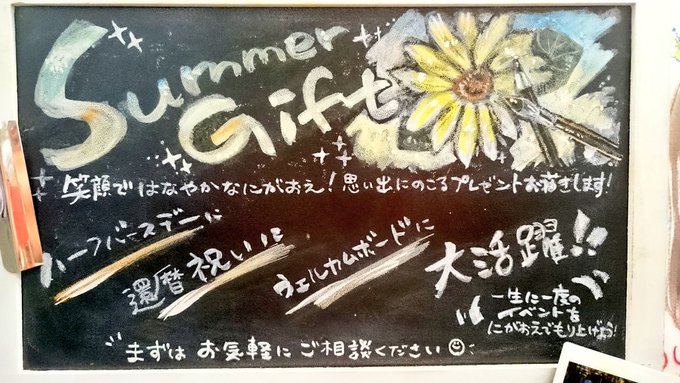 Summer
Gift
笑顔ではなやかなにがおえ！思い出にのこるプレゼントお描きします！
ハーフバースデーに
還暦祝いに
ウェルカムボードに
大活躍!!
一生に一度の
イベントを
にがおえでもり上げよう!
まずは お気軽に ご相談ください